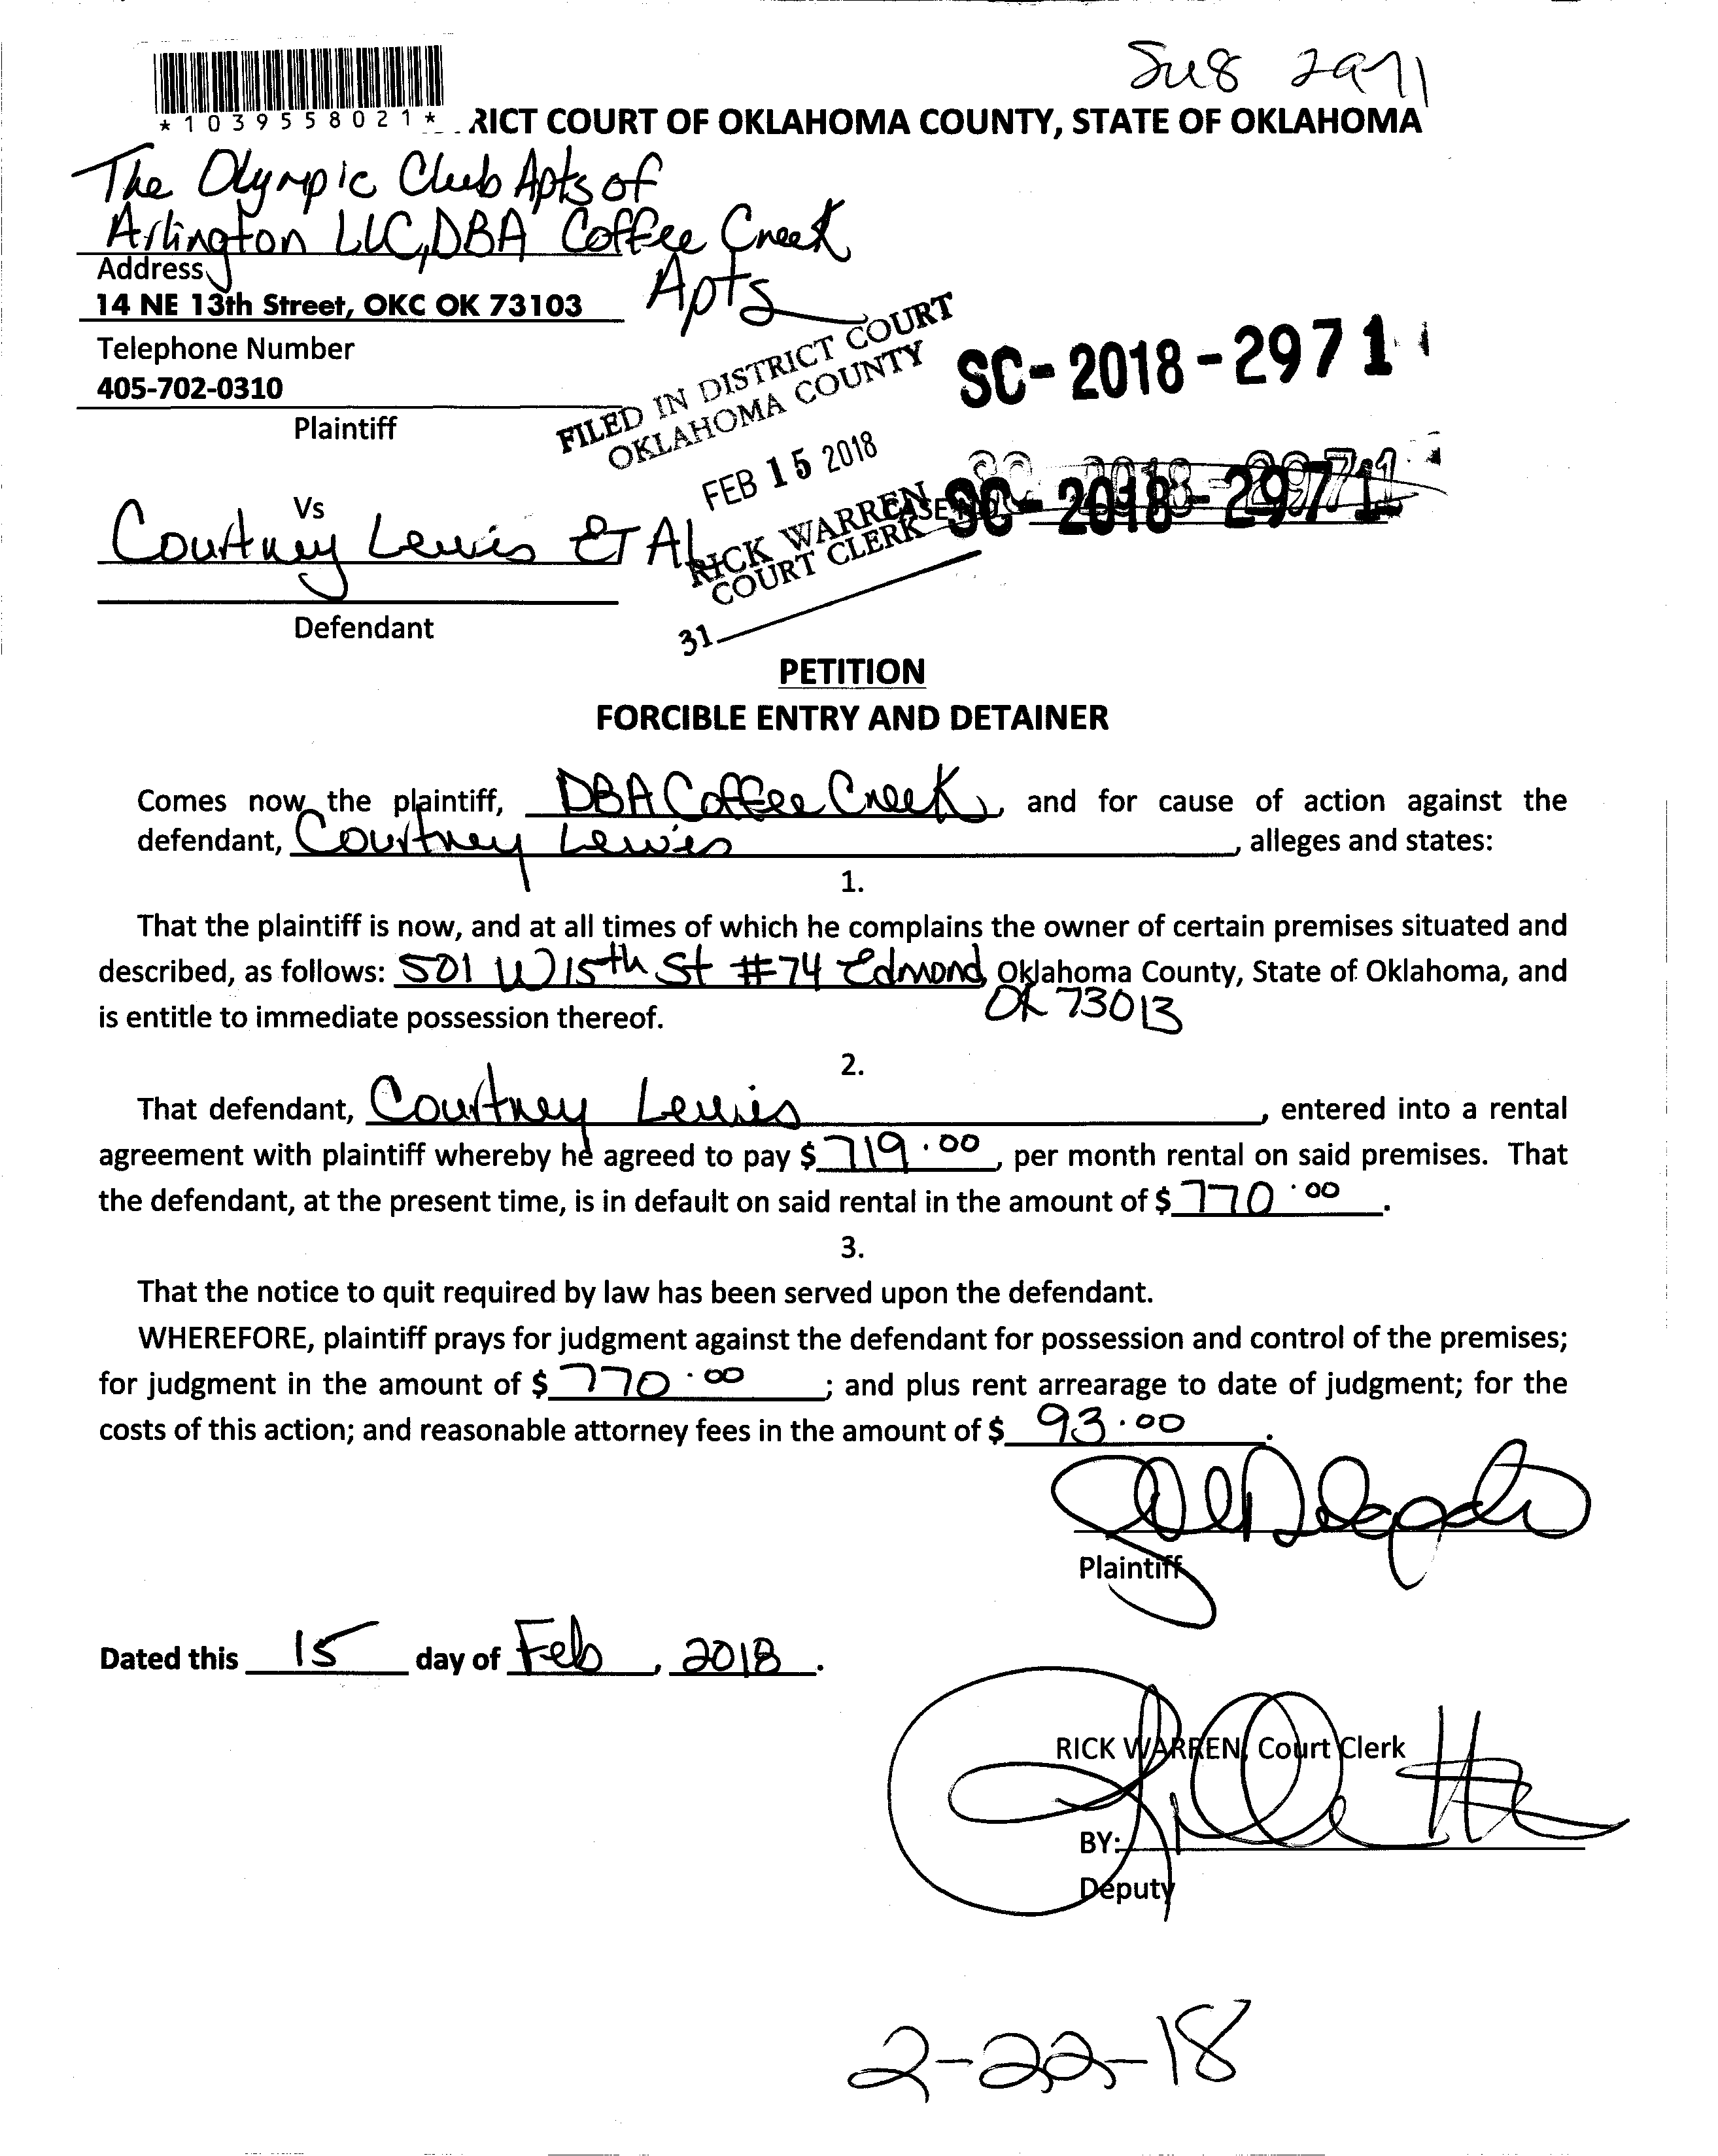 *1039558021*
RICT COURT OF OKLAHOMA COUNTY, STATE OF OKLAHOMA
The Olympic Club Apts of
Arlington LLC, DBA Coffee Creek
Apts
Address
14 NE 13th Street, OKC OK 73103
Telephone Number
405-702-0310
Plaintiff
FILED IN DISTRICT COURT
OKLAHOMA COUNTY
FEB 15 2018
RICK WARREN
COURT CLERK
31
SC-2018-2971
CASE NO. SC-2018-2971
Vs
Courtney Lewis ET Al
Defendant
PETITION
FORCIBLE ENTRY AND DETAINER
Comes now the plaintiff, DBA Coffee Creek, and for cause of action against the
defendant, Courtney Lewis, alleges and states:
1.
That the plaintiff is now, and at all times of which he complains the owner of certain premises situated and
described, as follows: 501 W 15th St #74 Edmond, Oklahoma County, State of Oklahoma, and
OK 73013
is entitle to immediate possession thereof.
2.
That defendant, Courtney Lewis, entered into a rental
agreement with plaintiff whereby he agreed to pay $ 719.00, per month rental on said premises. That
the defendant, at the present time, is in default on said rental in the amount of $ 770.00.
3.
That the notice to quit required by law has been served upon the defendant.
WHEREFORE, plaintiff prays for judgment against the defendant for possession and control of the premises;
for judgment in the amount of $ 770.00; and plus rent arrearage to date of judgment; for the
costs of this action; and reasonable attorney fees in the amount of $ 93.00.
Plaintiff
Dated this 15 day of Feb, 2018.
RICK WARREN, Court Clerk
BY:
Deputy
2-22-18